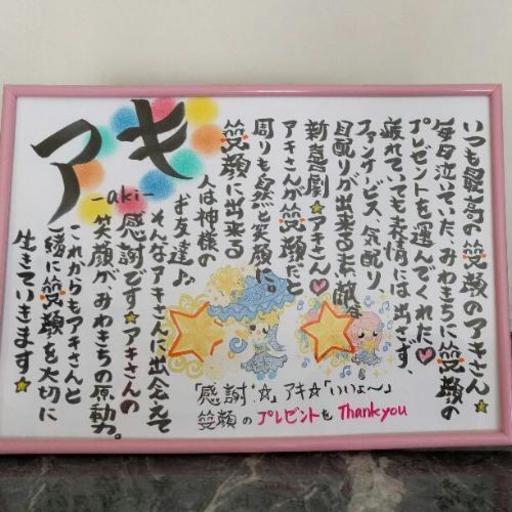 アキ
-aki-
いつも最高の笑顔のアキさん★
毎日泣いていた、みわきちに笑顔の
プレゼントを運んでくれた♡
疲れていても表情には出さず、
ファンサービス、気配り
目配りが出来る素敵な
新喜劇★アキさん♡
アキさんが笑顔だと
周りも自然と笑顔に。
笑顔に出来る
人は神様の
お友達♪
そんなアキさんに出会えて
感謝です★アキさんの
笑顔が、みわきちの原動力。
これからもアキさんと
一緒に笑顔を大切に
生きていきます★
「感謝!☆」アキ☆「いいよ〜」
笑顔のプレゼントを Thankyou